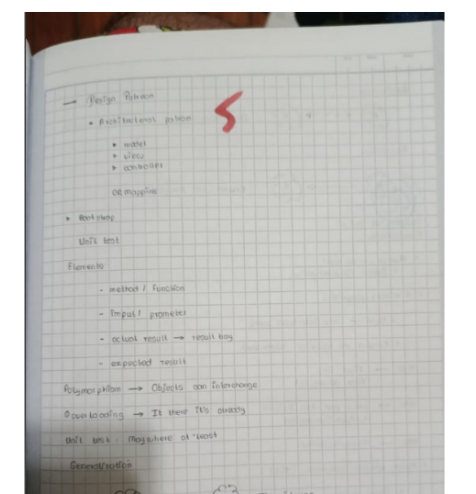 → Design Pattern
• Architectural pattern
5
• model
• view
• controller
OR mapping
• Bootstrap
Unit test
Elements
- method / function
- Imput /
- actual result → result
- expected result
Polymorphism → Objects can interchange
Overloading → It it's already
Unit test: at least
Generalization